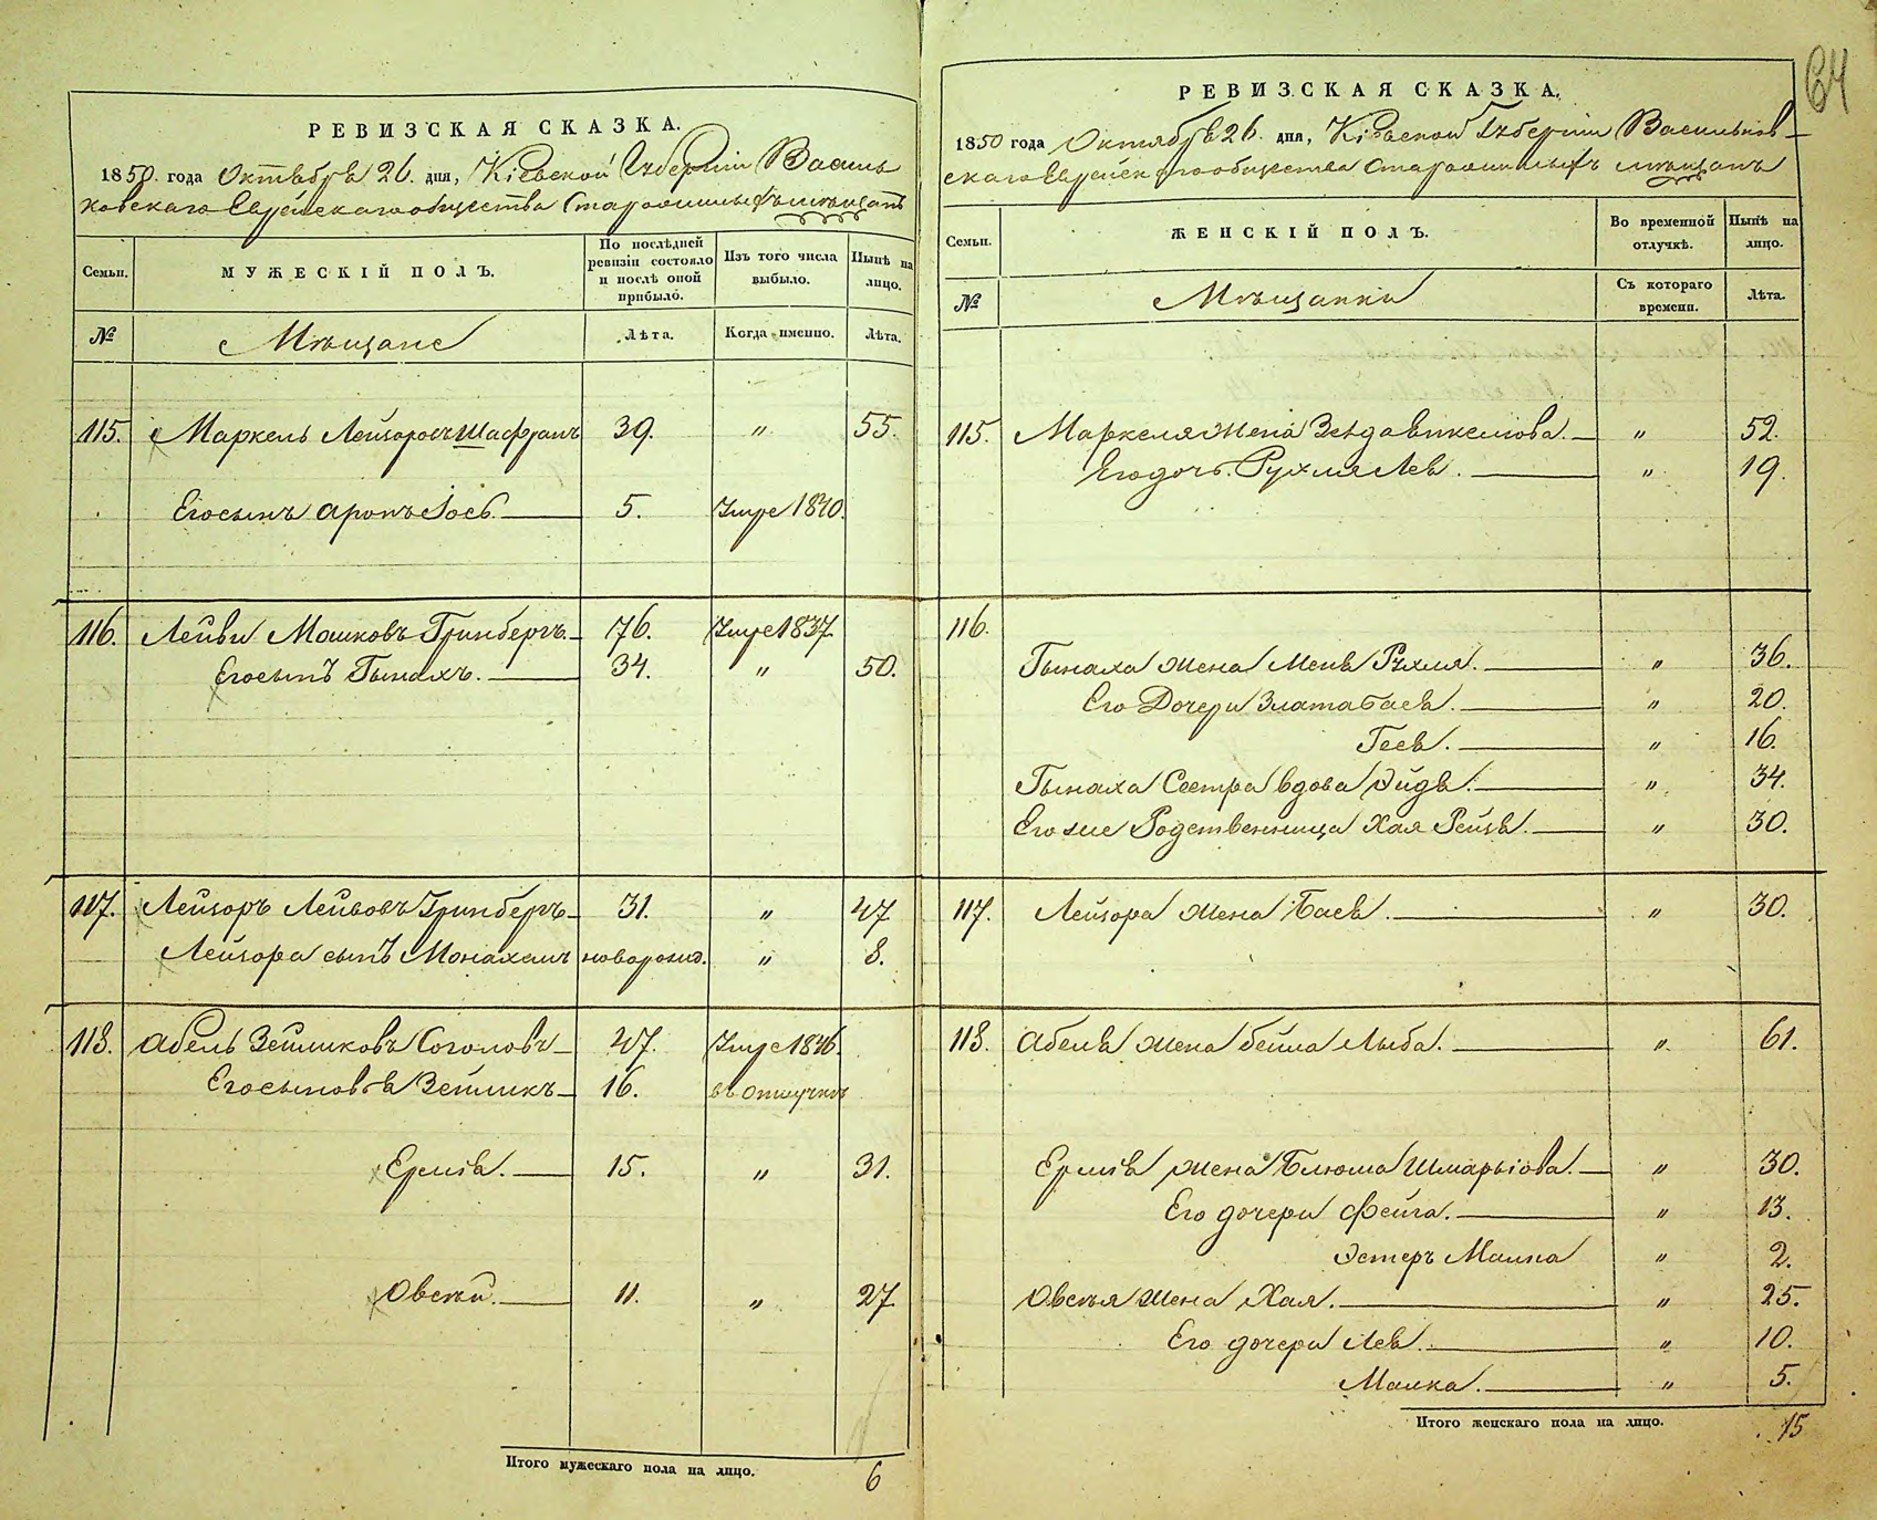 64
РЕВИЗСКАЯ СКАЗКА.
1850. года Октября 26. дня, Кіевской Губерніи Василь
ковскаго Еврейскаго общества Старожилыхъ мѣщанъ
Семьи.
МУЖЕСКІЙ ПОЛЪ.
По послѣдней ревизіи состояло и послѣ оной прибыло.
Изъ того числа выбыло.
Нынѣ на лицо.
№
Мѣщане
Лѣта.
Когда именно.
Лѣта.
115. Маркель Лейзоровъ Шафранъ 39. " 55.
Его сынъ Аронъ Іось. 5. Умре 1840.
116. Лейви Мошковъ Гринбергъ. 76. Умре 1837.
Его сынъ Гынахъ. 34. " 50.
117. Лейзоръ Лейвовъ Гринбергъ 31. " 47
Лейзора сынъ Монахемъ новорожд. " 8.
118. Абель Зейликовъ Соголовъ 47. Умре 1846.
Его сыновья Зейликъ 16. въ отлучкѣ
Ермія. 15. " 31.
Овсѣй. 11. " 27
Итого мужескаго пола на лицо. 6
РЕВИЗСКАЯ СКАЗКА.
1850 года Октября 26. дня, Кіевской Губерніи Васильков
скаго Еврейскаго общества Старожилыхъ мѣщанъ
Семьи.
ЖЕНСКІЙ ПОЛЪ.
Во временной отлучкѣ.
Нынѣ на лицо.
№
Мѣщанки
Съ котораго времени.
Лѣта.
115. Маркеля жена " 52.
Его дочь Рухля Лея. " 19.
116.
Гынаха жена Меня Рухля. " 36.
Его Дочери Злата Бася. " 20.
Гося. " 16.
Гынаха Сестра вдова Эйдя. " 34.
Его же Родственница Хая Рейзя. " 30.
117. Лейзора жена Бася. " 30.
118. Абеля жена Бейла Лыба. " 61.
Ермія жена Блюма Шмарьіова. " 30.
Его дочери Фейга. " 13.
Эстеръ Малка " 2.
Овсѣя жена Хая. " 25.
Его дочери Лея. " 10.
Малка. " 5.
Итого женскаго пола на лицо. 15